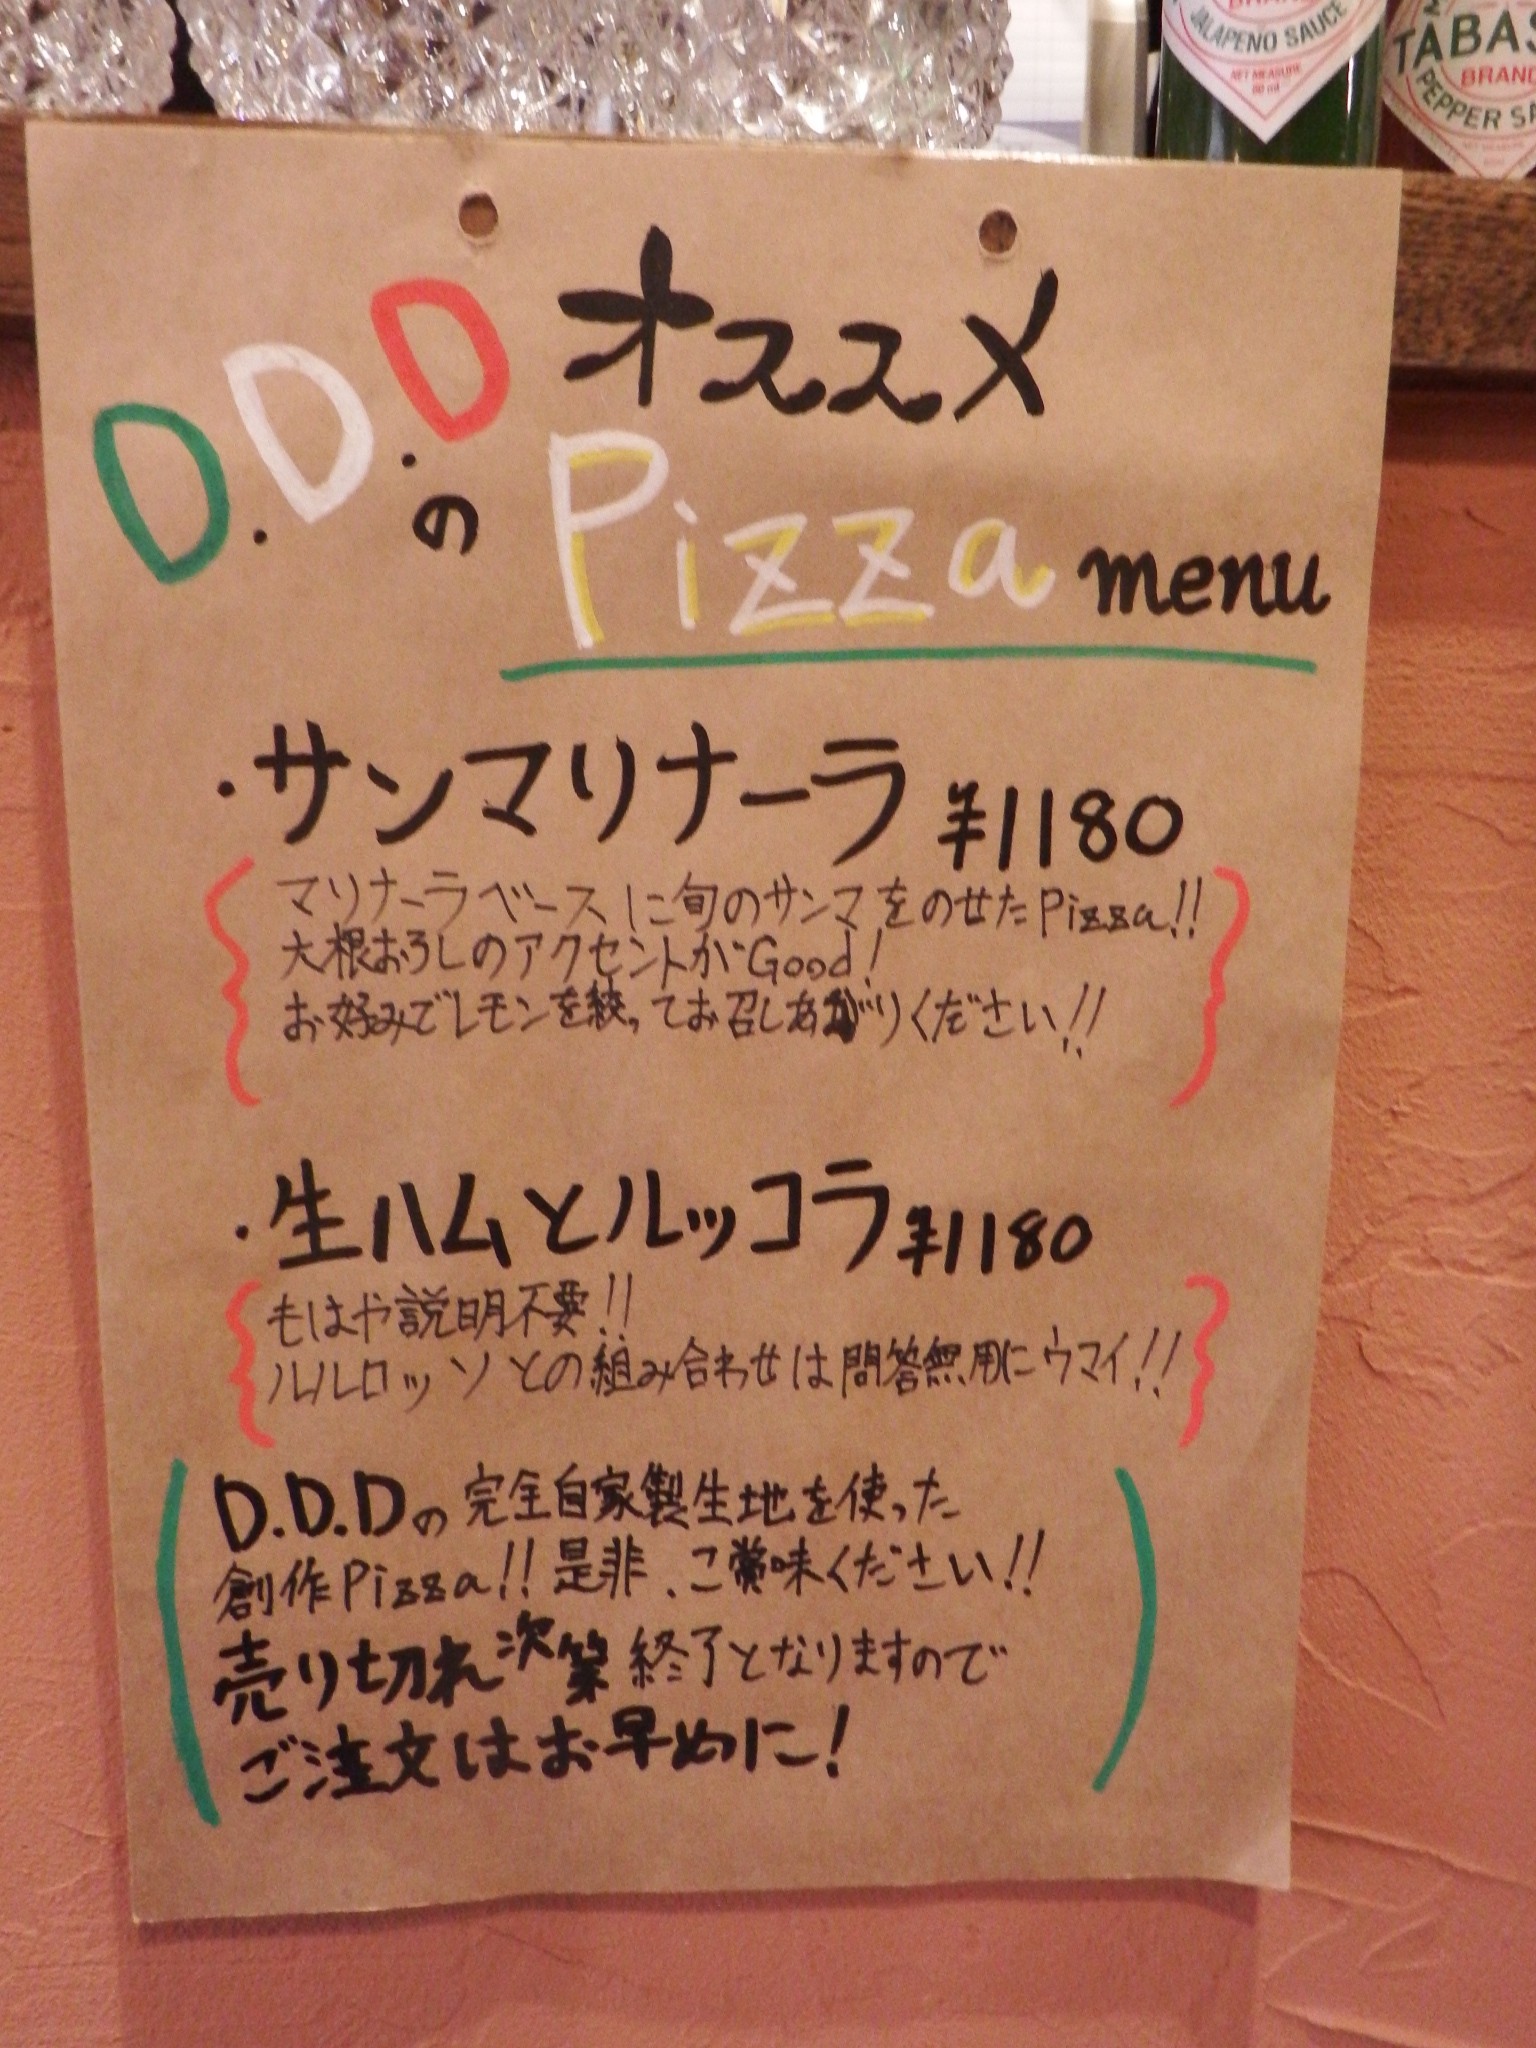 BRAND
JALAPENO SAUCE
NET MEASURE
60 ml
TABAS
BRAND
PEPPER SA
NET MEASURE
D.D.Dの
オススメ
Pizza menu
・サンマリナーラ ¥1180
マリナーラベースに旬のサンマをのせたPizza!!
大根おろしのアクセントがGood!
お好みでレモンを絞ってお召しあがりください!!
・生ハムとルッコラ ¥1180
もはや説明不要!!
ルルロッソとの組み合わせは問答無用にウマイ!!
D.D.Dの完全自家製生地を使った
創作Pizza!! 是非、ご賞味ください!!
売り切れ次第終了となりますので
ご注文はお早めに!